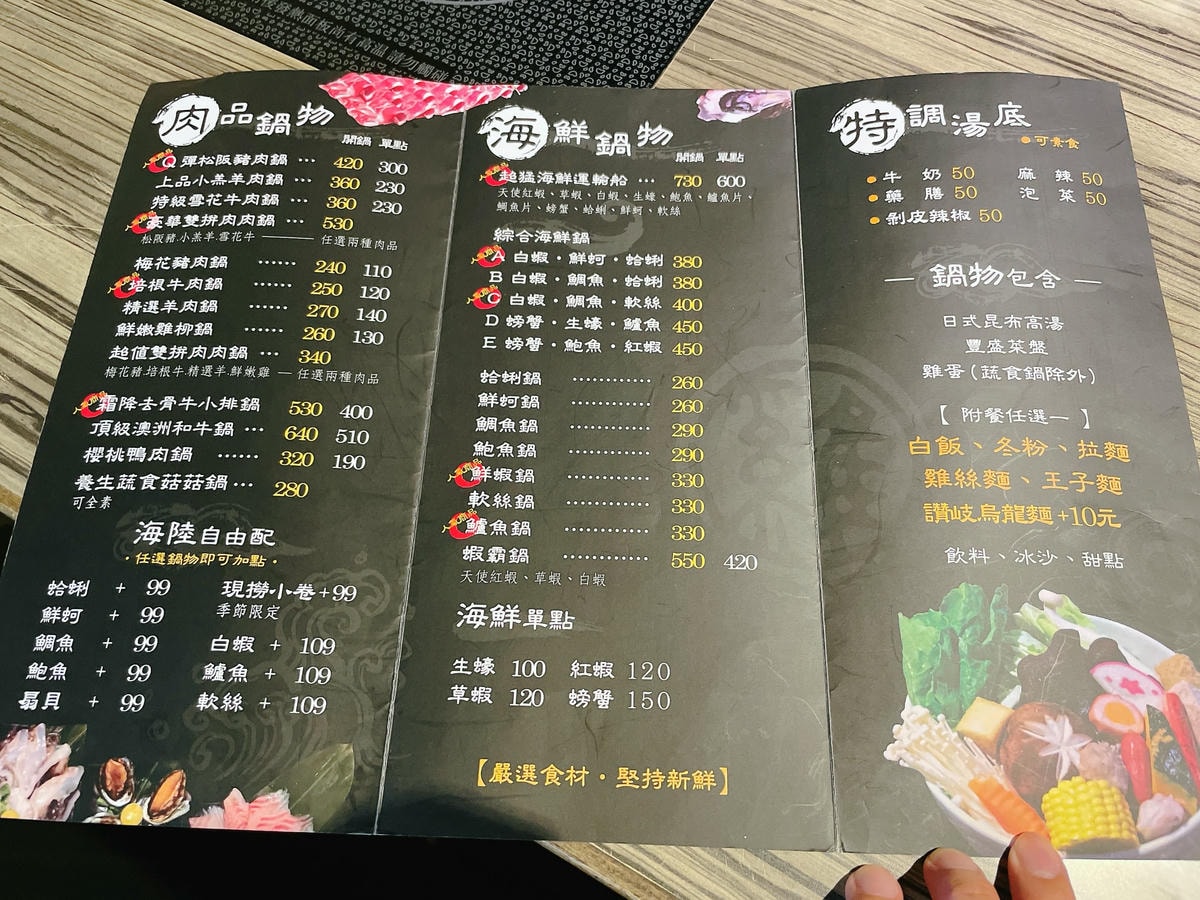 肉品鍋物
開鍋 單點
Q彈松阪豬肉鍋 … 420 300
上品小羔羊肉鍋 … 360 230
特級雪花牛肉鍋 … 360 230
豪華雙拼肉肉鍋 530
松阪豬.小羔羊.雪花牛 ——— 任選兩種肉品
梅花豬肉鍋 …… 240 110
培根牛肉鍋 …… 250 120
精選羊肉鍋 …… 270 140
鮮嫩雞柳鍋 …… 260 130
超值雙拼肉肉鍋 … 340
梅花豬.培根牛.精選羊.鮮嫩雞 — 任選兩種肉品
霜降去骨牛小排鍋 530 400
頂級澳洲和牛鍋 … 640 510
櫻桃鴨肉鍋 …… 320 190
養生蔬食菇菇鍋 … 280
可全素
海陸自由配
·任選鍋物即可加點·
蛤蜊 + 99 現撈小卷+99
季節限定
鮮蚵 + 99
鯛魚 + 99 白蝦 + 109
鮑魚 + 99 鱸魚 + 109
扇貝 + 99 軟絲 + 109
海鮮鍋物
開鍋 單點
超猛海鮮運輸船 … 730 600
天使紅蝦、草蝦、白蝦、生蠔、鮑魚、鱸魚片、
鯛魚片、螃蟹、蛤蜊、鮮蚵、軟絲
綜合海鮮鍋
A 白蝦·鮮蚵·蛤蜊 380
B 白蝦·鯛魚·蛤蜊 380
C 白蝦·鯛魚·軟絲 400
D 螃蟹·生蠔·鱸魚 450
E 螃蟹·鮑魚·紅蝦 450
蛤蜊鍋 ………… 260
鮮蚵鍋 ………… 260
鯛魚鍋 ………… 290
鮑魚鍋 ………… 290
鮮蝦鍋 ………… 330
軟絲鍋 ………… 330
鱸魚鍋 ………… 330
蝦霸鍋 ………… 550 420
天使紅蝦、草蝦、白蝦
海鮮單點
生蠔 100 紅蝦 120
草蝦 120 螃蟹 150
【嚴選食材·堅持新鮮】
特調湯底
●可素食
●牛奶 50 麻辣 50
●藥膳 50 泡菜 50
●剝皮辣椒 50
— 鍋物包含 —
日式昆布高湯
豐盛菜盤
雞蛋(蔬食鍋除外)
【 附餐任選一 】
白飯、冬粉、拉麵
雞絲麵、王子麵
讚岐烏龍麵+10元
飲料、冰沙、甜點